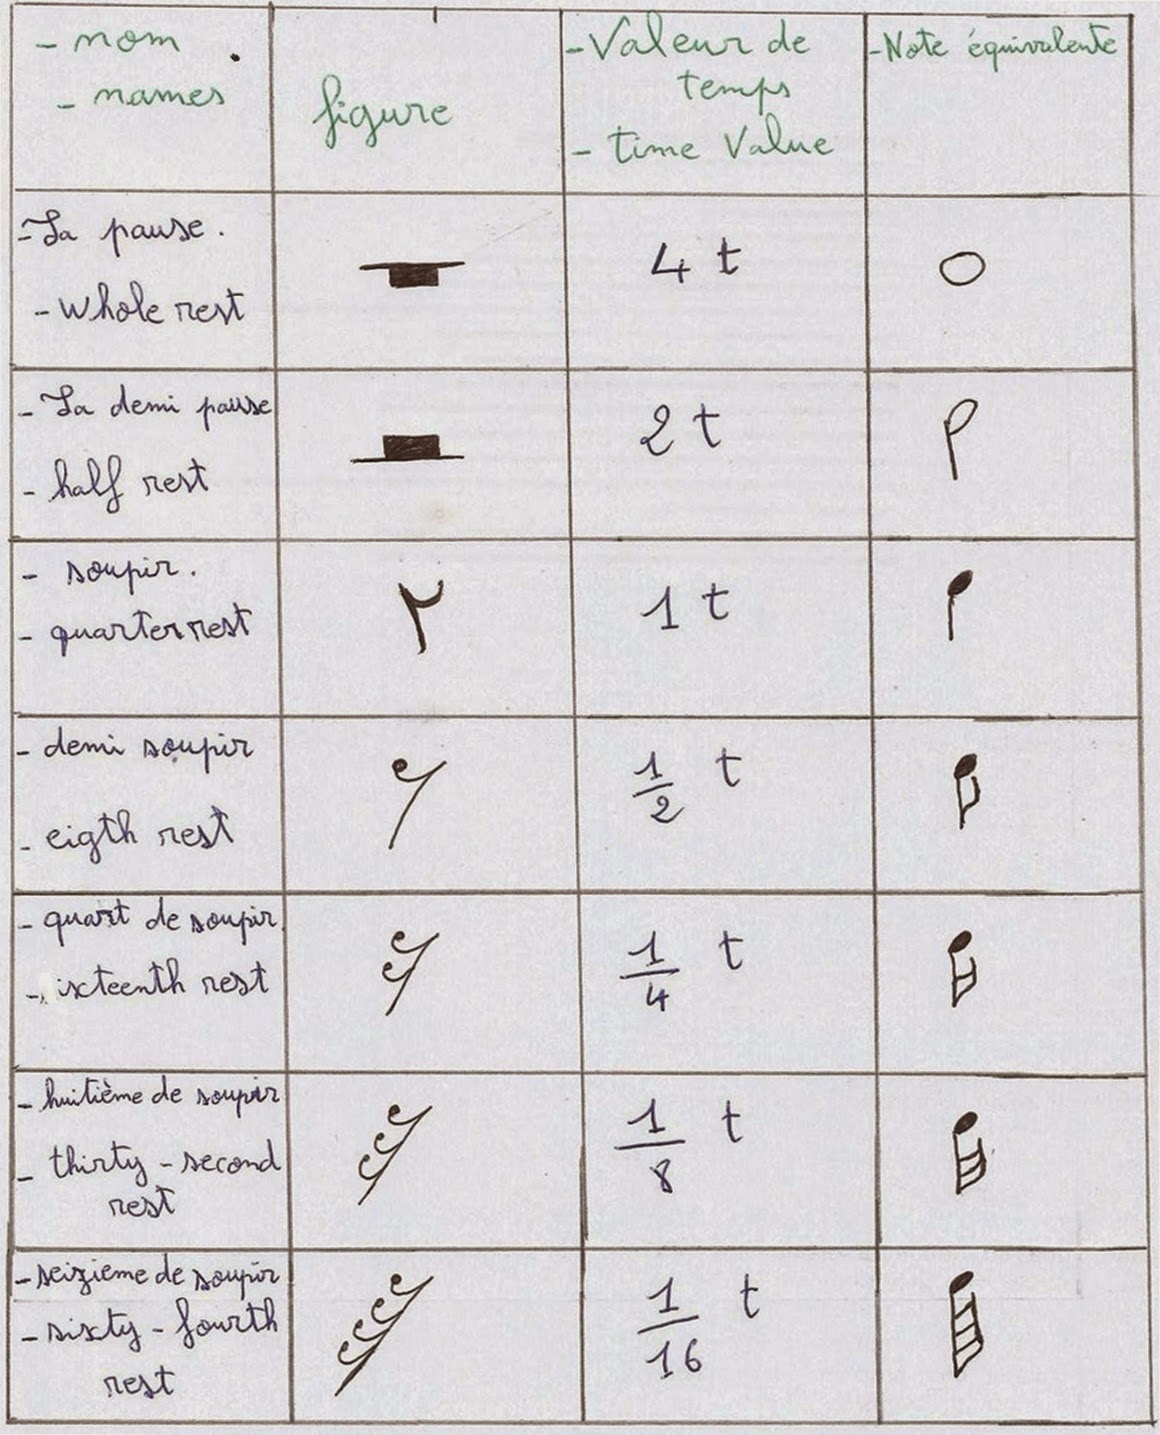 - nom
- names
figure
- Valeur de
temps
- time Value
- Note équivalente
- La pause.
- Whole rest
4 t
- La demi pause
- half rest
2 t
- soupir.
- quarter rest
1 t
- demi soupir
- eigth rest
1/2 t
- quart de soupir.
- ixteenth rest
1/4 t
- huitième de soupir
- thirty - second
rest
1/8 t
- seizieme de soupir
- sixty - fourth
rest
1/16 t